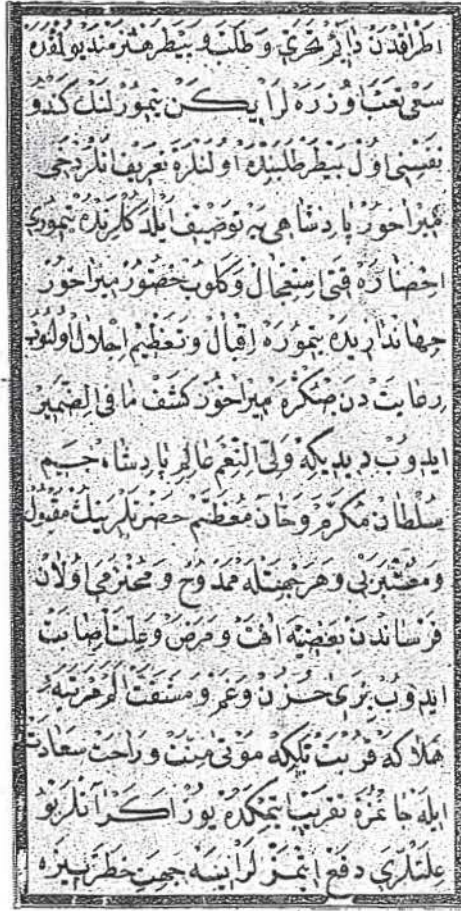 اطرافدن داکر تحری و طلب و بیطر هنرمندی بولمقده
سعی تعب اوزره لر ایکن تیمور لنك کندو
نفسنی اول بیطر طلبنده اولنلره تعریف انلر دخی
میراخور پادشاهی یه توصیف ایلدکلرنده تیموری
احضاره قتی استعجال وکلوب حضور میراخور
جهانداریده تیموره اقبال و تعظیم اجلال اولنوب
رعایت دن صکره میراخور کشف ما فی الضمیر
ایدوب دیدیکه ولی النعم عالم پادشاه جم
سلطان مکرم و خان معظم حضرتلرینك مقبول
و معتبری و هر جهتله ممدوح و محترمی اولان
فرساندن بعضیه افت و مرض و علت اصابت
ایدوب بزی حزن و غم و مشقت الم مرتبه
هلاکه قربت تلکه موتی منت و راحت سعادت
ایله جانمزه تقریب ایتمکده یوز اکر انلر بو
علتلری دفع ایتمزلر ایسه جهت خطر بزه